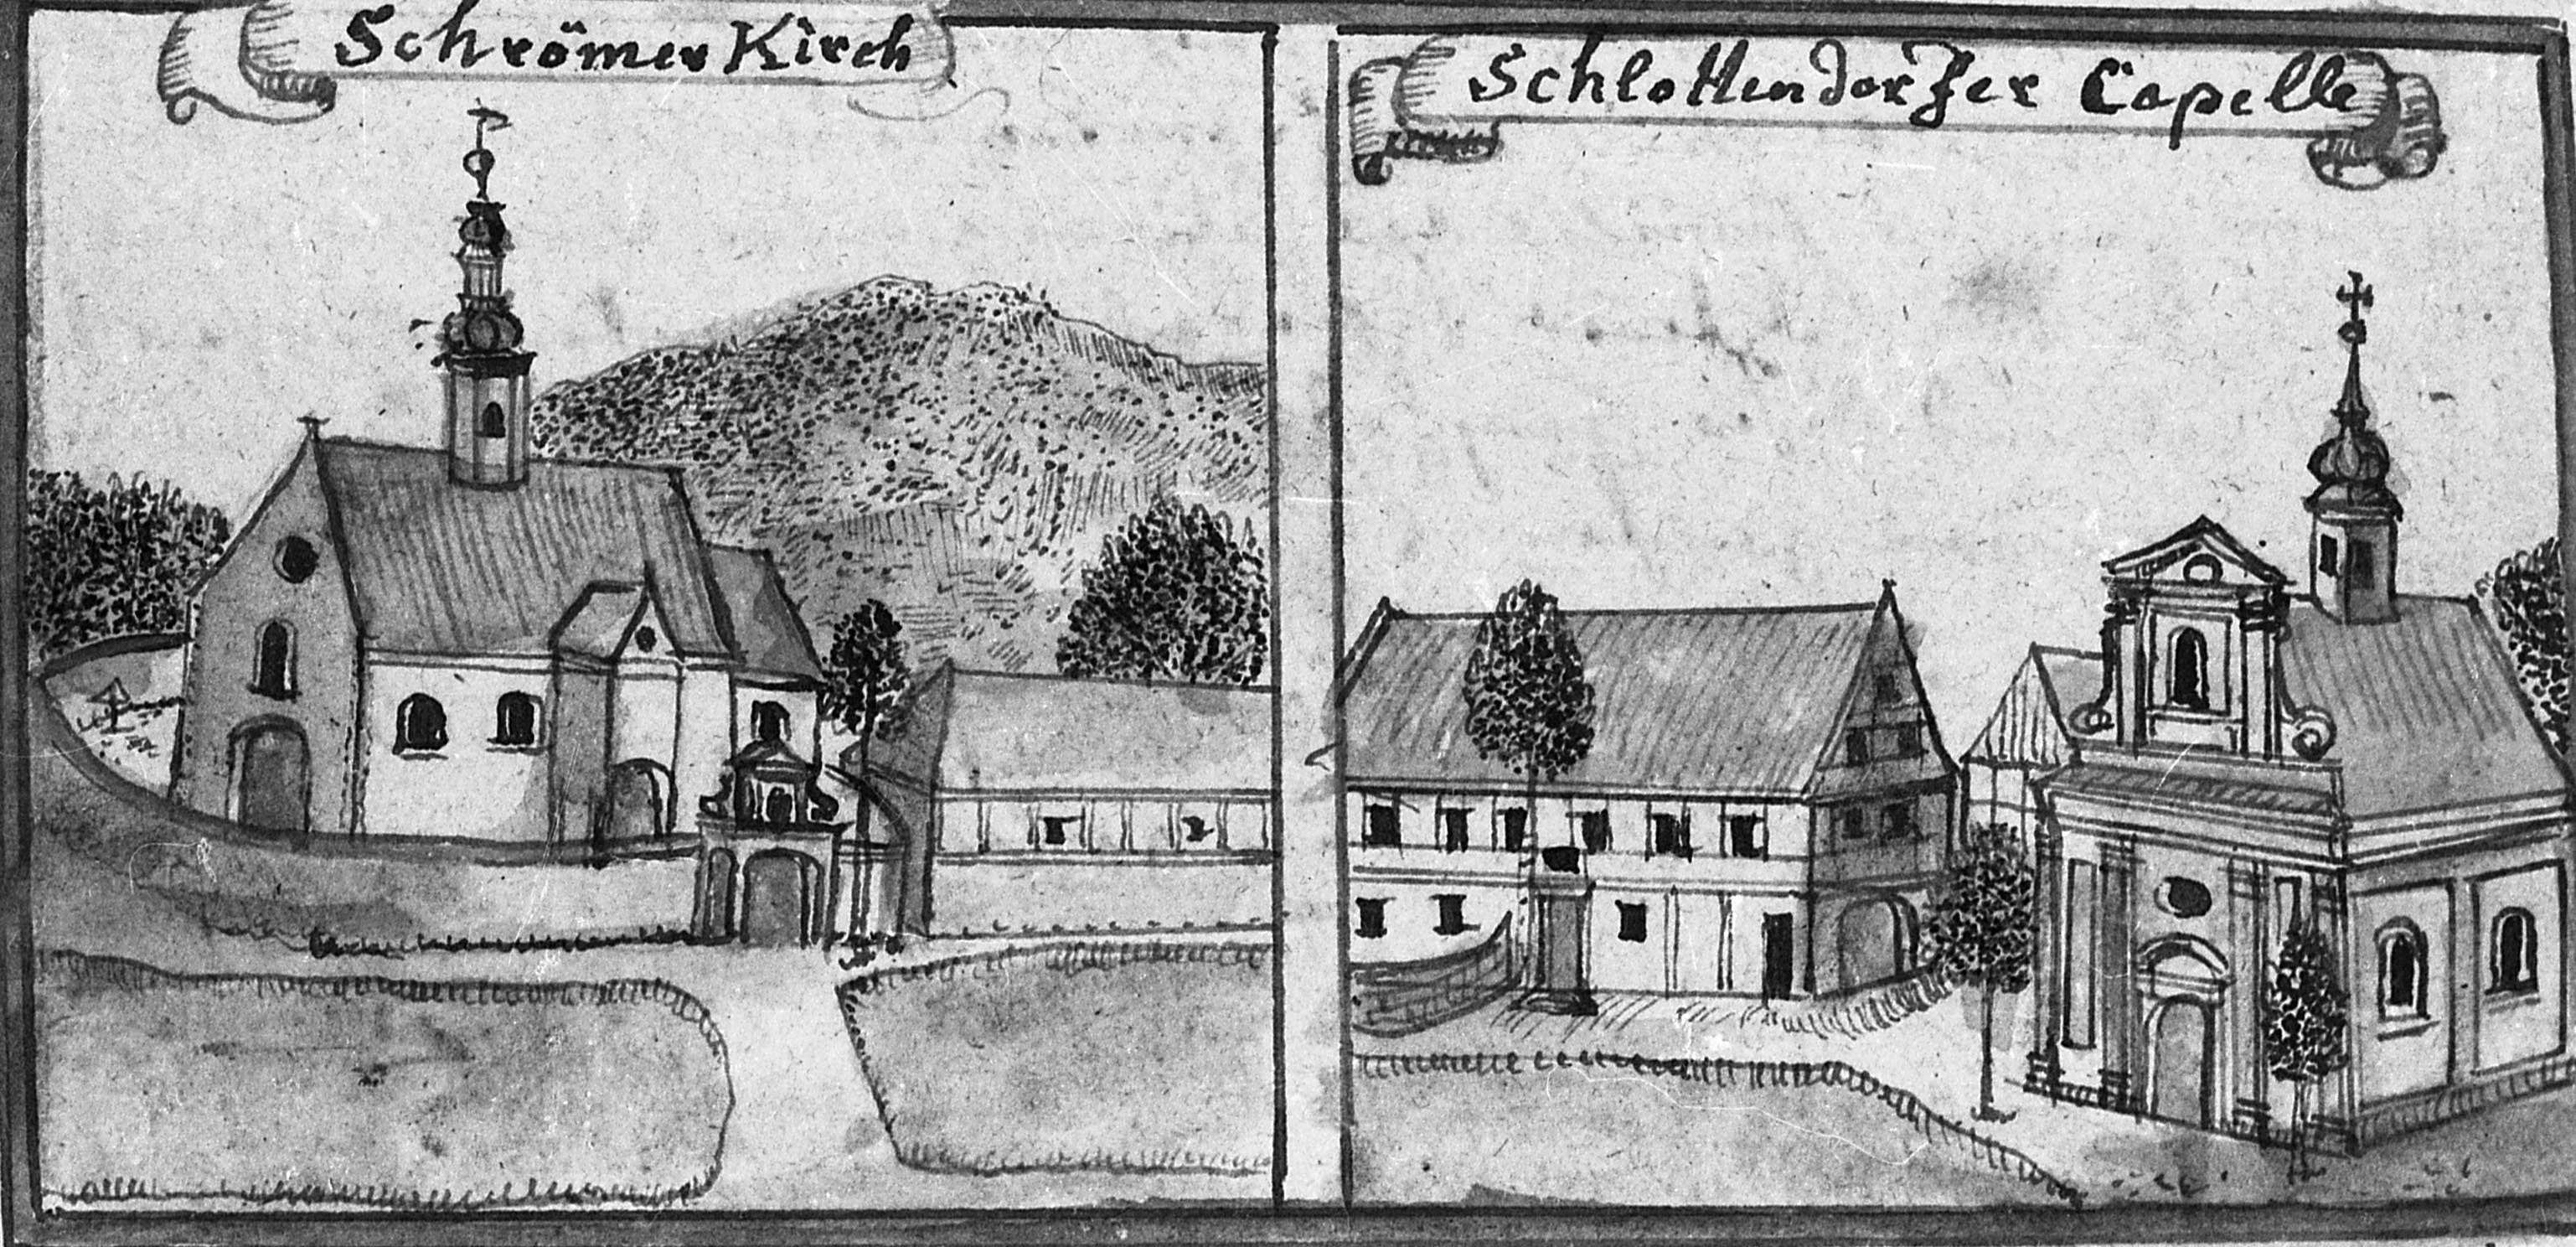 Schrömer Kirch
Schlottendorfer Capelle